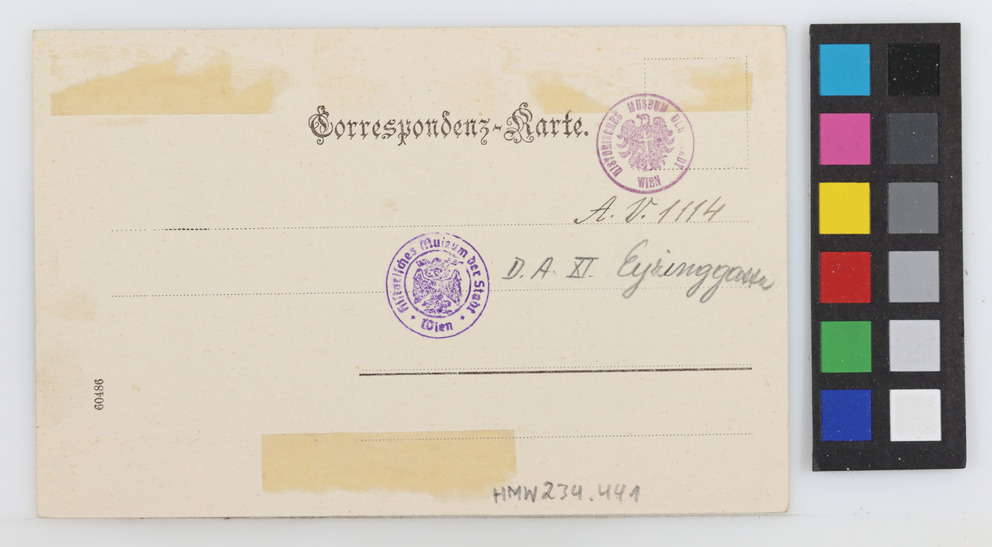 Correspondenz-Karte.
HISTORISCHES MUSEUM DER STADT WIEN
A. V. 1114
Historisches Museum der Stadt Wien
D. A. XI.
60486
HMW 234.441